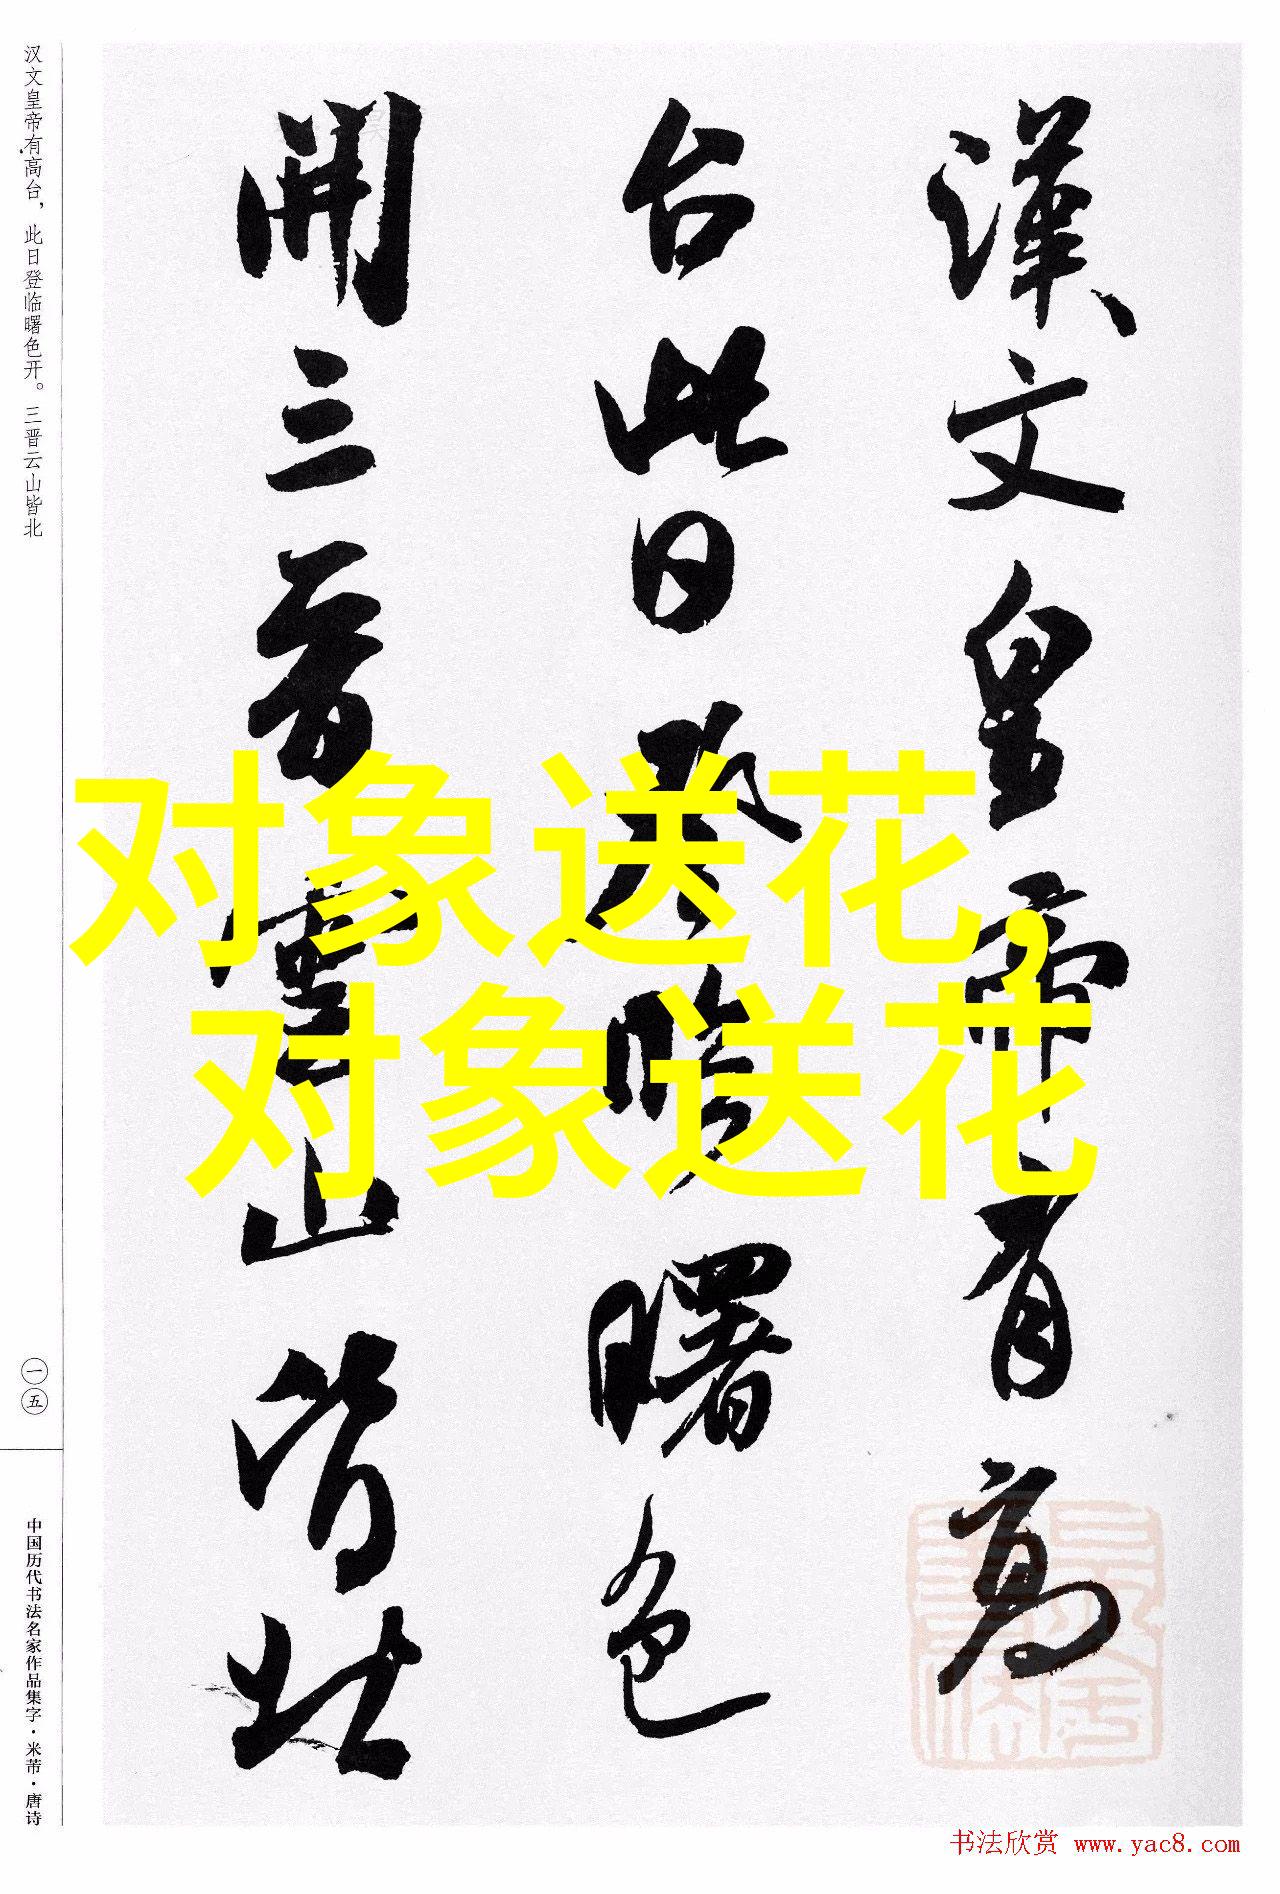 漢文皇帝有高
台此日登臨曙色
開三晉雲山皆北
汉文皇帝有高台，此日登临曙色开。三晋云山皆北
一五
中国历代书法名家作品集字·米芾·唐诗
对象送花，
对象送花
书法欣赏 www.yac8.com